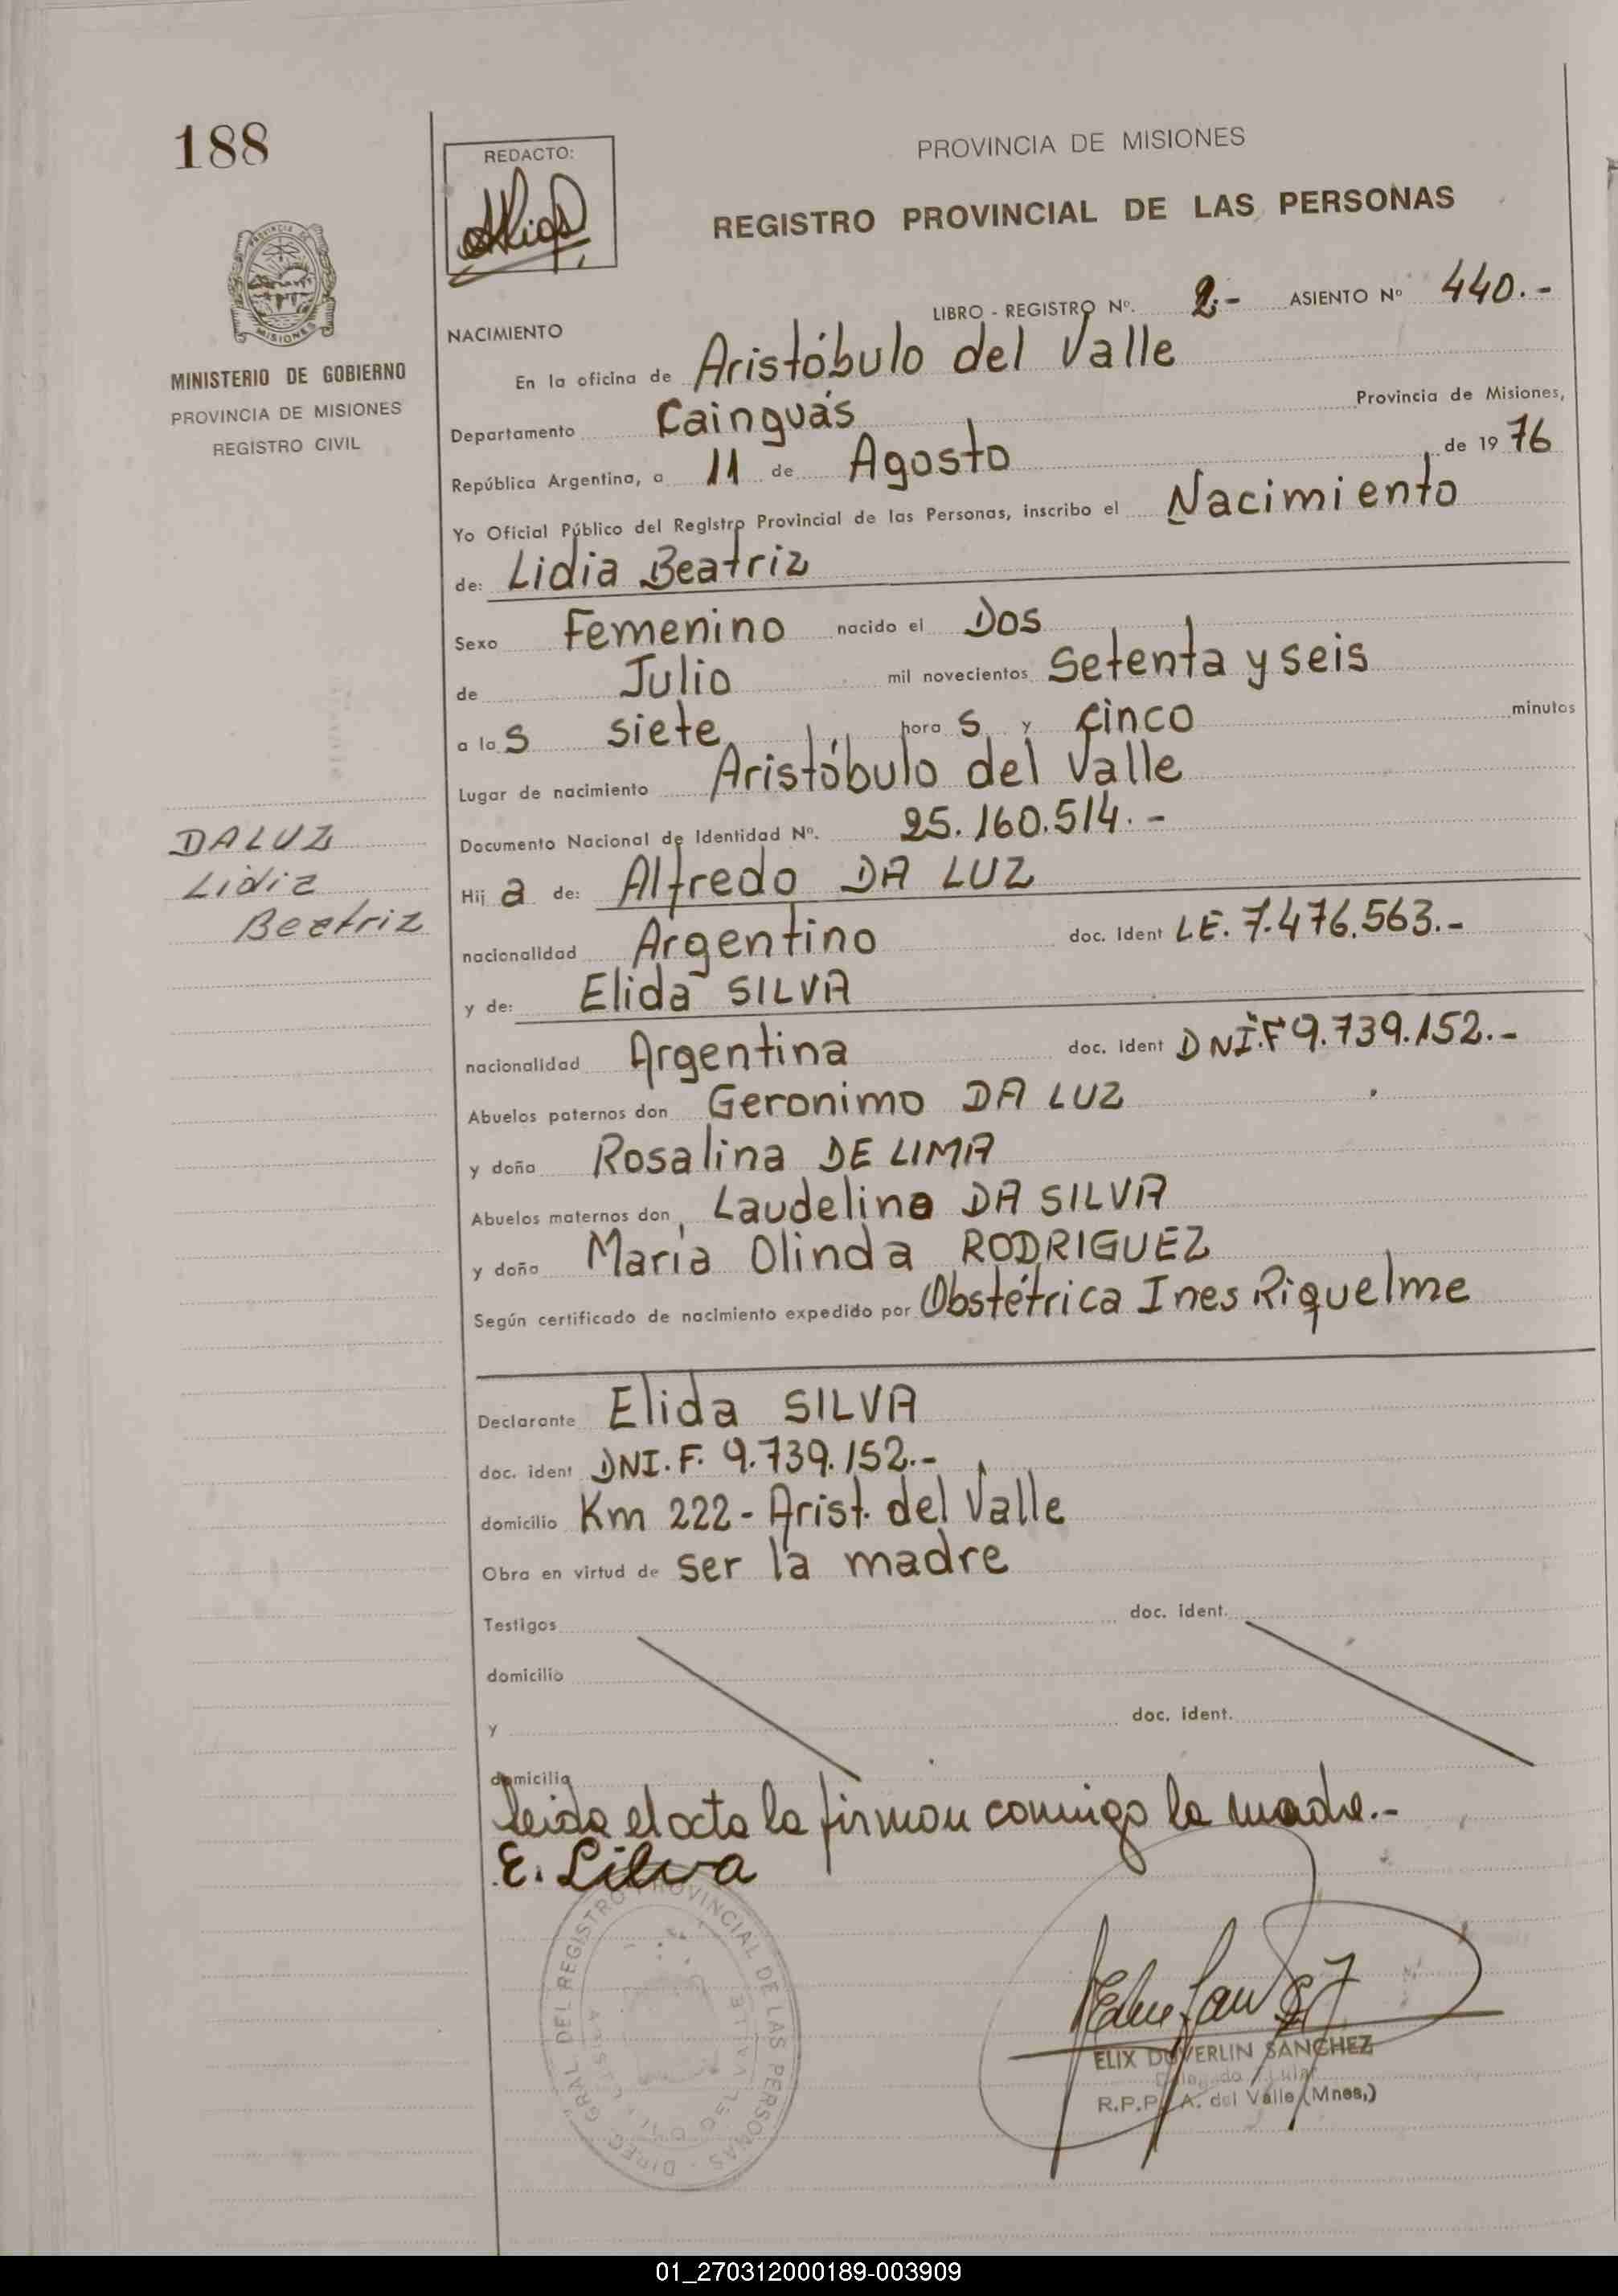 188
REDACTO:
PROVINCIA DE MISIONES
REGISTRO PROVINCIAL DE LAS PERSONAS
MISIONES
MINISTERIO DE GOBIERNO
PROVINCIA DE MISIONES
REGISTRO CIVIL
LIBRO - REGISTRO Nº. 2.- ASIENTO Nº 440.-
NACIMIENTO
En la oficina de Aristóbulo del Valle
Departamento Cainguás Provincia de Misiones,
República Argentina, a 11 de Agosto de 1976
Yo Oficial Público del Registro Provincial de las Personas, inscribo el Nacimiento
de: Lidia Beatriz
Sexo Femenino nacido el Dos
de Julio mil novecientos Setenta y seis
a las siete horas y cinco minutos
Lugar de nacimiento Aristóbulo del Valle
Documento Nacional de Identidad Nº. 25.160.514.-
DALUZ
Lidia
Beatriz
Hija de: Alfredo DA LUZ
nacionalidad Argentino doc. Ident LE. 7.476.563.-
y de: Elida SILVA
nacionalidad Argentina doc. ident DNI.F 9.739.152.-
Abuelos paternos don Geronimo DA LUZ
y doña Rosalina DE LIMA
Abuelos maternos don Laudelino DA SILVA
y doña María Olinda RODRIGUEZ
Según certificado de nacimiento expedido por Obstétrica Ines Riquelme
Declarante Elida SILVA
doc. ident DNI.F. 9.739.152.-
domicilio Km 222 - Arist. del Valle
Obra en virtud de ser la madre
Testigos doc. ident.
domicilio
y doc. ident.
domicilio
leida el acta la firman conmigo la madre.-
E. Silva
DIREC. GRAL. DEL REGISTRO PROVINCIAL DE LAS PERSONAS
ELIX DUVERLIN SANCHEZ
R.P.P. A. del Valle (Mnes,)
01_270312000189-003909